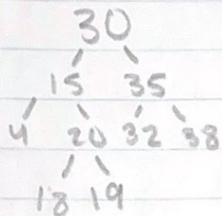 30
15 35
4 20 32 38
18 19